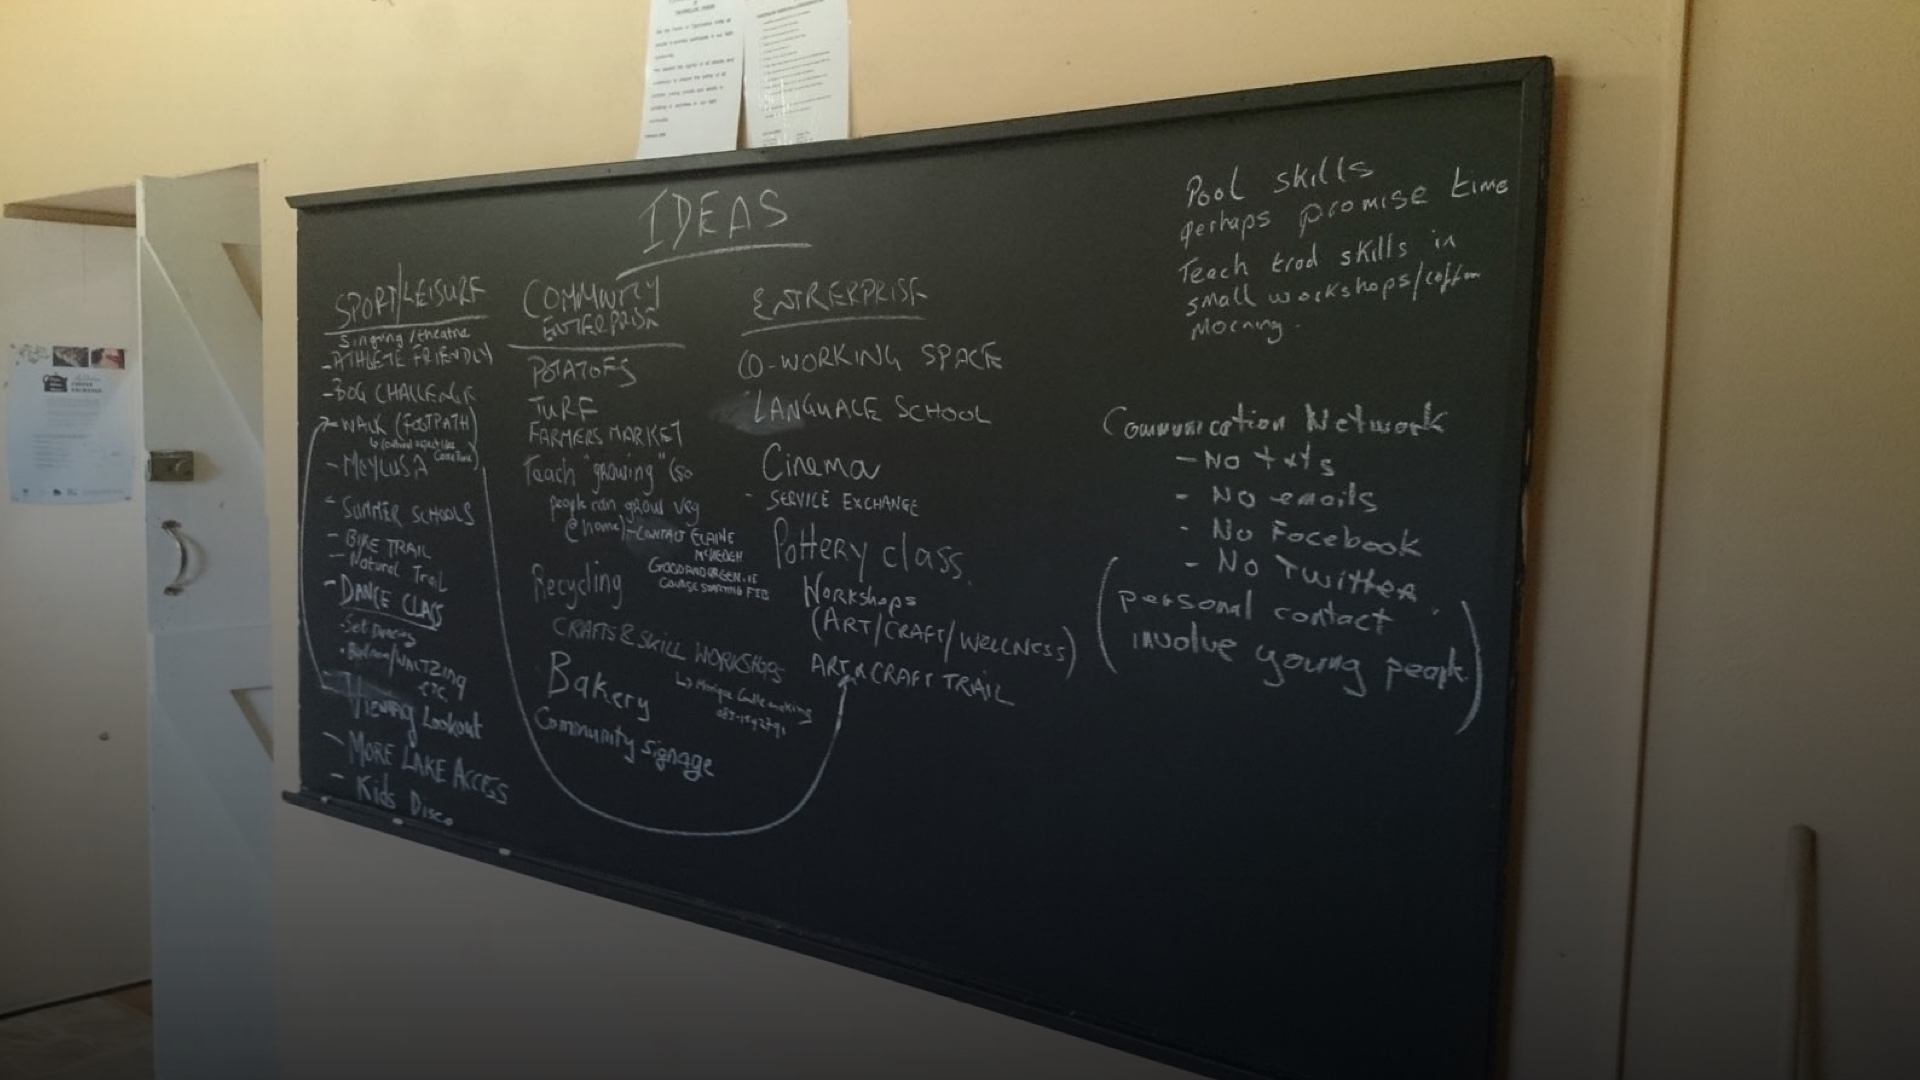 IDEAS
SPORT/LEISURE
Singing/theatre
- ATHLETE FRIENDLY
- BOG CHALLENGE
- WALK (FOOTPATH)
- MEYLUSA
- SUMMER SCHOOLS
- BIKE TRAIL
- Natural Trail
- DANCE CLASS
- Set Dancing
WALTZING
ETC
- Viewing Lookout
- MORE LAKE ACCESS
- Kids Disco
COMMUNITY
ENTERPRISE
POTATOES
TURF
FARMERS MARKET
Teach "growing" (so
people can grow veg
@ home) - CONTACT ELAINE
COURSE STARTING FEB
Recycling
CRAFTS & SKILL WORKSHOPS
Bakery
Community signage
ENTRERPRISE
CO-WORKING SPACE
LANGUAGE SCHOOL
Cinema
- SERVICE EXCHANGE
Pottery class.
Workshops
(ART/CRAFT/WELLNESS)
ART & CRAFT TRAIL
Pool skills
perhaps promise time
Teach trad skills in
small workshops/coffee
Morning.
Communication Network
- No txts
- No emails
- No Facebook
- No Twitter.
(personal contact
involve young people)